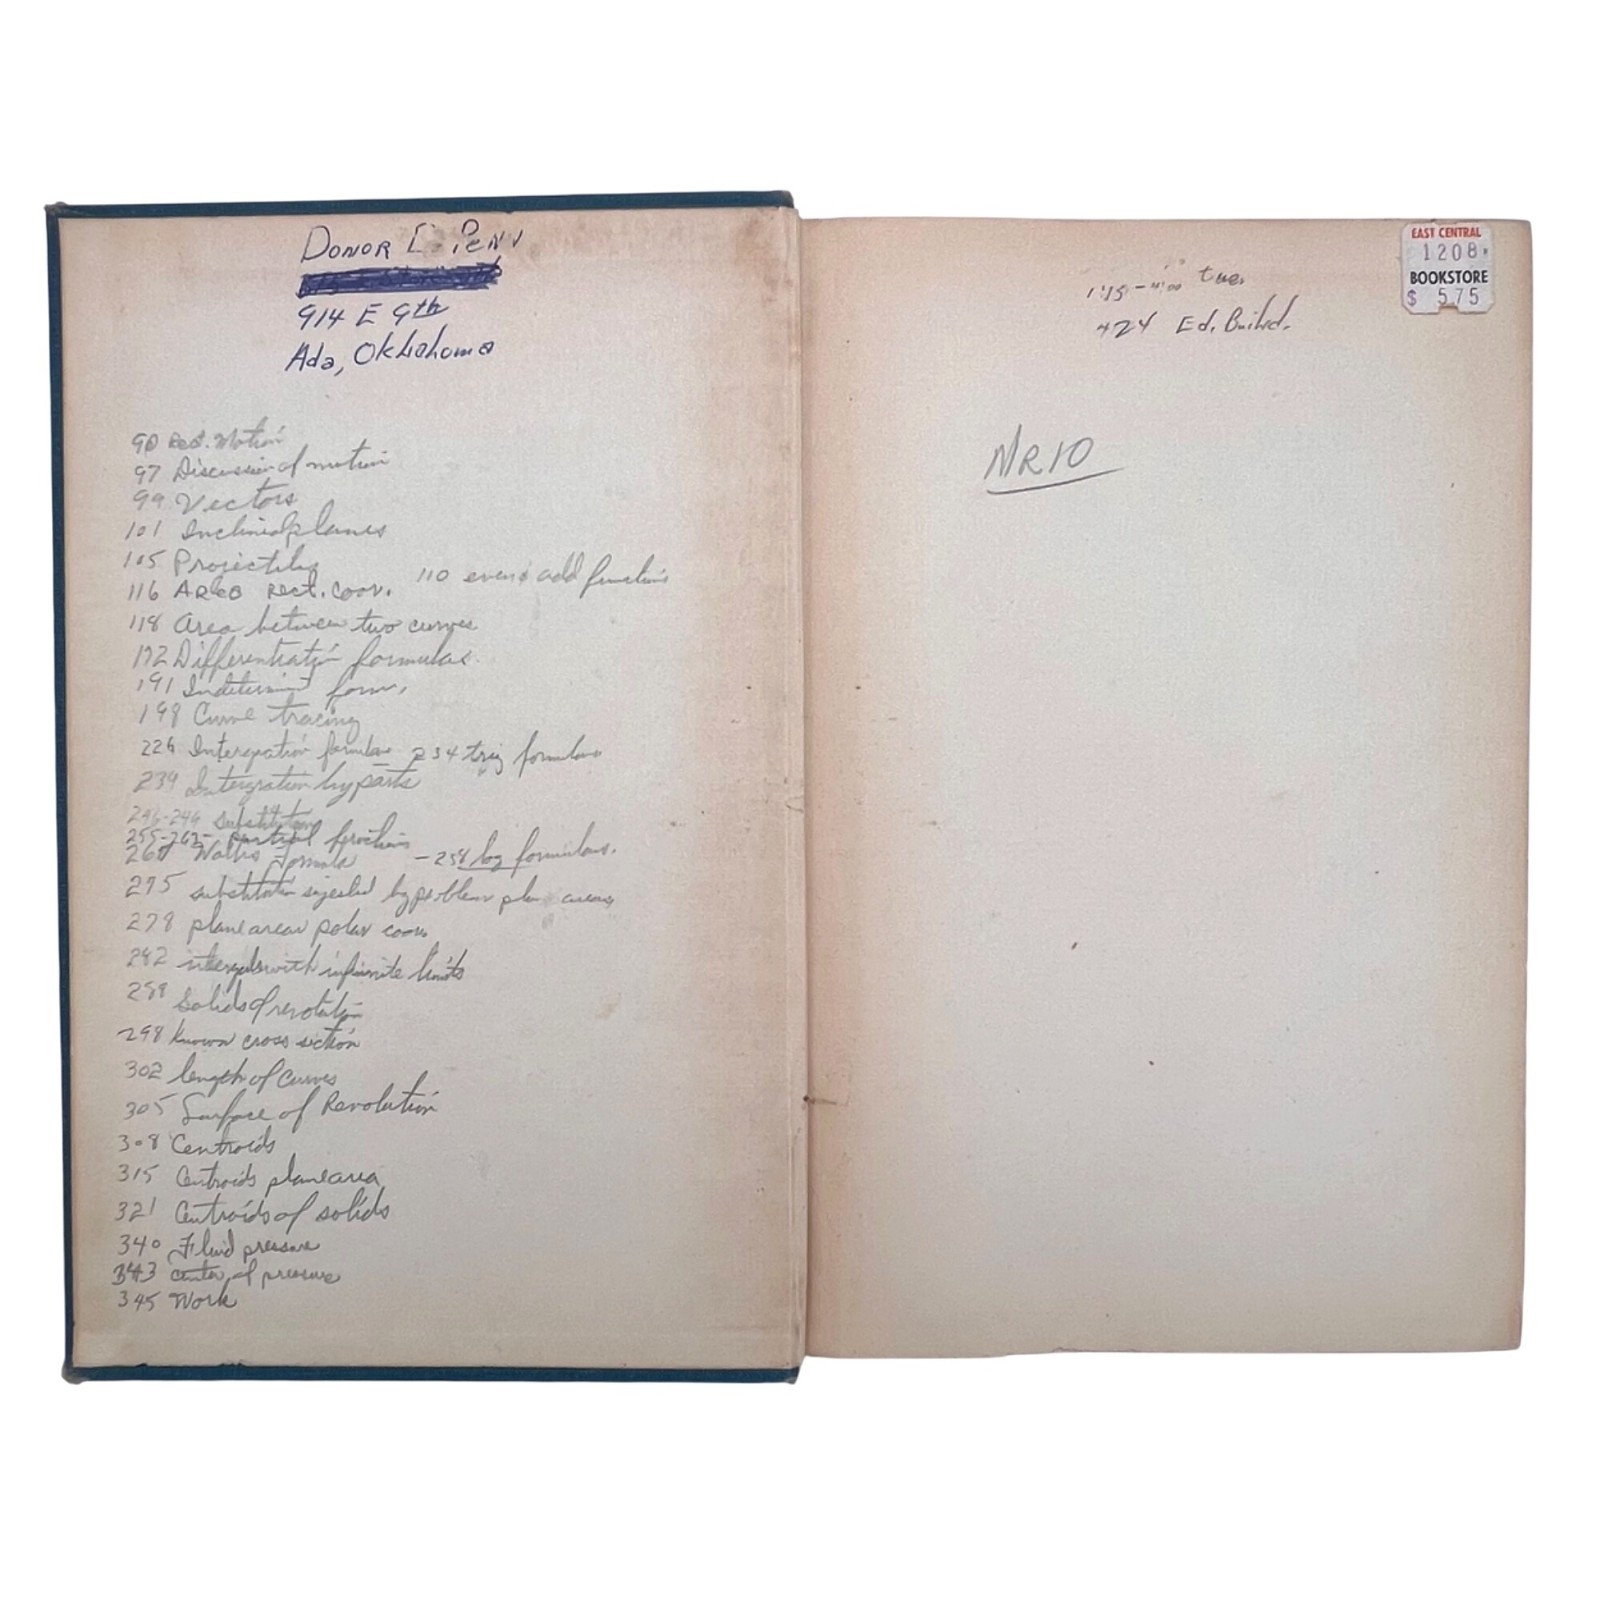 DONOR E PENN
914 E 9th
Ada, Oklahoma
90 Rect. Motion
97 Discussion of motion
99 Vectors
101 Inclined planes
105 Projectiles
110 even & odd functions
116 AREA Rect. coor.
118 Area between two curves
172 Differentiation formulas.
191 Indeterminent form,
198 Curve tracing
226 Intergration formulas 234 trig formulas
239 Intergration by parts
246-249 substitution
255-262- partial fractions
268 Wallis Formula - 258 log formulas.
275 substitution by problem plane areas
278 plane areas polar coor.
282 intergals with infinite limits
289 Solids of revolution
298 known cross section
302 length of curves
305 Surface of Revolution
308 Centroids
315 Centroids plane area
321 Centroids of solids
340 Fluid pressure
343 center of pressure
345 Work
1:15 - 4:00 tue.
424 Ed. Build.
MR10
EAST CENTRAL
1208
BOOKSTORE
$ 5.75